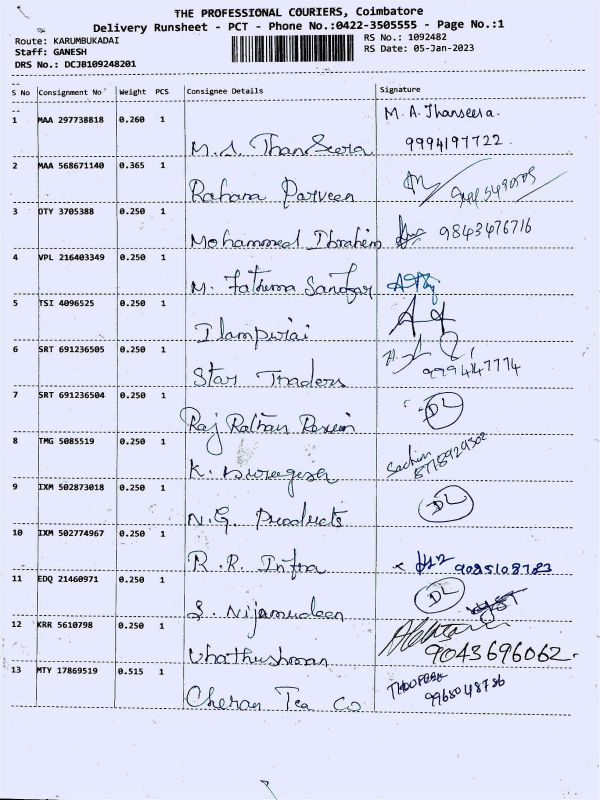 THE PROFESSIONAL COURIERS, Coimbatore
Delivery Runsheet - PCT - Phone No.:0422-3505555 - Page No.:1
Route: KARUMBUKADAI
Staff: GANESH
DRS No.: DCJB109248201
RS No.: 1092482
RS Date: 05-Jan-2023
S No Consignment No Weight PCS Consignee Details Signature
1 MAA 297738818 0.260 1 M.A. Thanseera
M.A. ThanSeera 9994197722
2 MAA 568671140 0.365 1
Rahana Parveen
3 OTY 3705388 0.250 1
Mohammed Ibrahim 9843476716
4 VPL 216403349 0.250 1
M. Fathima Sanofar
5 TSI 4096525 0.250 1
Ilampirai
6 SRT 691236505 0.250 1
Star Traders 9994147774
7 SRT 691236504 0.250 1 DL
Raj Rathan
8 TMG 5085519 0.250 1 Sachin
K. 8778929302
9 IXM 502873018 0.250 1 DL
N.G. Products
10 IXM 502774967 0.250 1
R.R. Infra
11 EDQ 21460971 0.250 1 DL
S. Nijamudeen
12 KRR 5610798 0.250 1
9043696062
13 MTY 17869519 0.515 1
Cheran Tea Co 9965048786